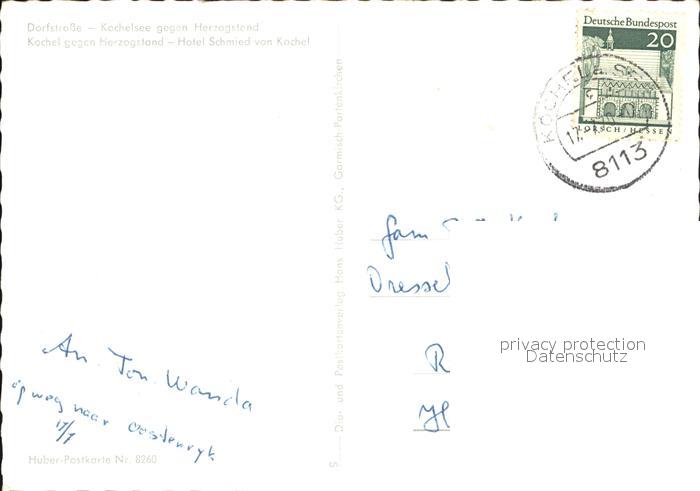 Dorfstraße – Kochelsee gegen Herzogstand
Kochel gegen Herzogstand – Hotel Schmied von Kochel
Deutsche Bundespost
20
LORSCH/HESSEN
KOCHEL a. See
8113
Dia- und Postkartenverlag Hans Huber KG., Garmisch-Partenkirchen
fam
Dressel
R
privacy protection
Datenschutz
An. Ton. Wanda
op weg naar Oostenryk
17/7
Huber-Postkarte Nr. 8260